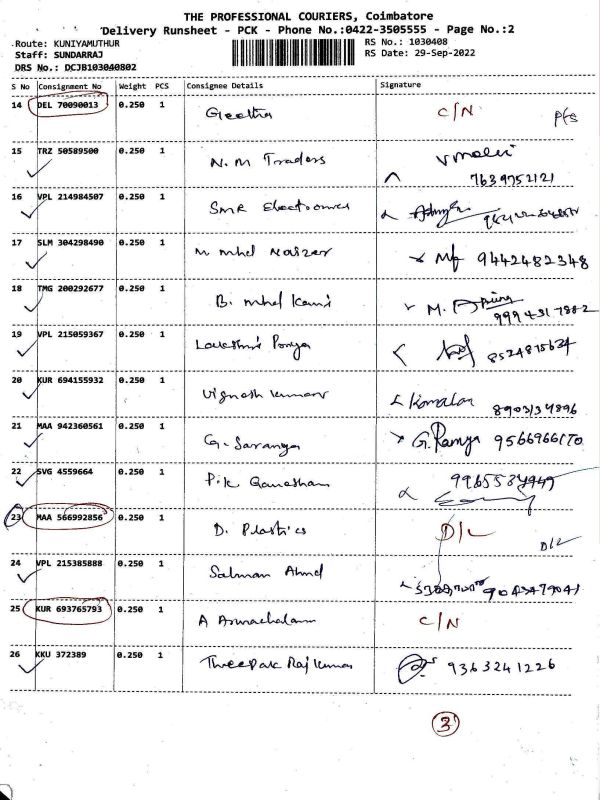 THE PROFESSIONAL COURIERS, Coimbatore
Delivery Runsheet - PCK - Phone No.:0422-3505555 - Page No.:2
Route: KUNIYAMUTHUR RS No.: 1030408
Staff: SUNDARRAJ RS Date: 29-Sep-2022
DRS No.: DCJB103040802
S No Consignment No Weight PCS Consignee Details Signature
14 DEL 70090013 0.250 1 Geetha C/N
15 TRZ 50589500 0.250 1 N. M Traders
7639752121
16 VPL 214984507 0.250 1 SMR Electronics
17 SLM 304298490 0.250 1 M Mhd 9442482348
18 TMG 200292677 0.250 1 B. Mhd Kani M.
9994317882
19 VPL 215059367 0.250 1 Lakshmi Priya
8524875634
20 KUR 694155932 0.250 1 Vignesh Kumar Komalan
8903134896
21 MAA 942360561 0.250 1 G. Saranya G. Ramya 9566966170
22 SVG 4559664 0.250 1 P.K Ganesham
23 MAA 566992856 0.250 1 D. Plastics D/L D/L
24 VPL 215385888 0.250 1 Salman Ahmd 9043479041
25 KUR 693765793 0.250 1 A Arunachalam C/N
26 KKU 372389 0.250 1 Raj Kumar 9363241226
3